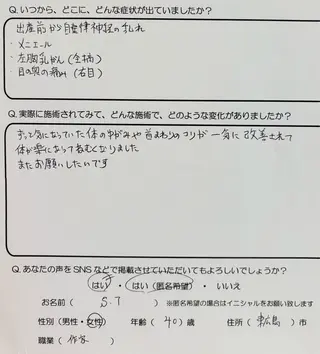 Q. いつから、どこに、どんな症状が出ていましたか？
出産前から自律神経の乱れ
・メニエール
・左胸乳がん(全摘)
・目の奥の痛み(右目)
Q. 実際に施術されてみて、どんな施術で、どのような変化がありましたか？
ずっと気になっていた体のゆがみや首まわりのコリが一気に改善されて
体が楽になってねむくなりました
またお願いしたいです
Q. あなたの声をSNSなどで掲載させていただいてもよろしいでしょうか？
はい ・ はい(匿名希望) ・ いいえ
お名前 ( S.T ) ※匿名希望の場合はイニシャルをお願い致します
性別 (男性・女性) 年齢 ( 40 ) 歳 住所 ( 東広島 ) 市
職業 ( )